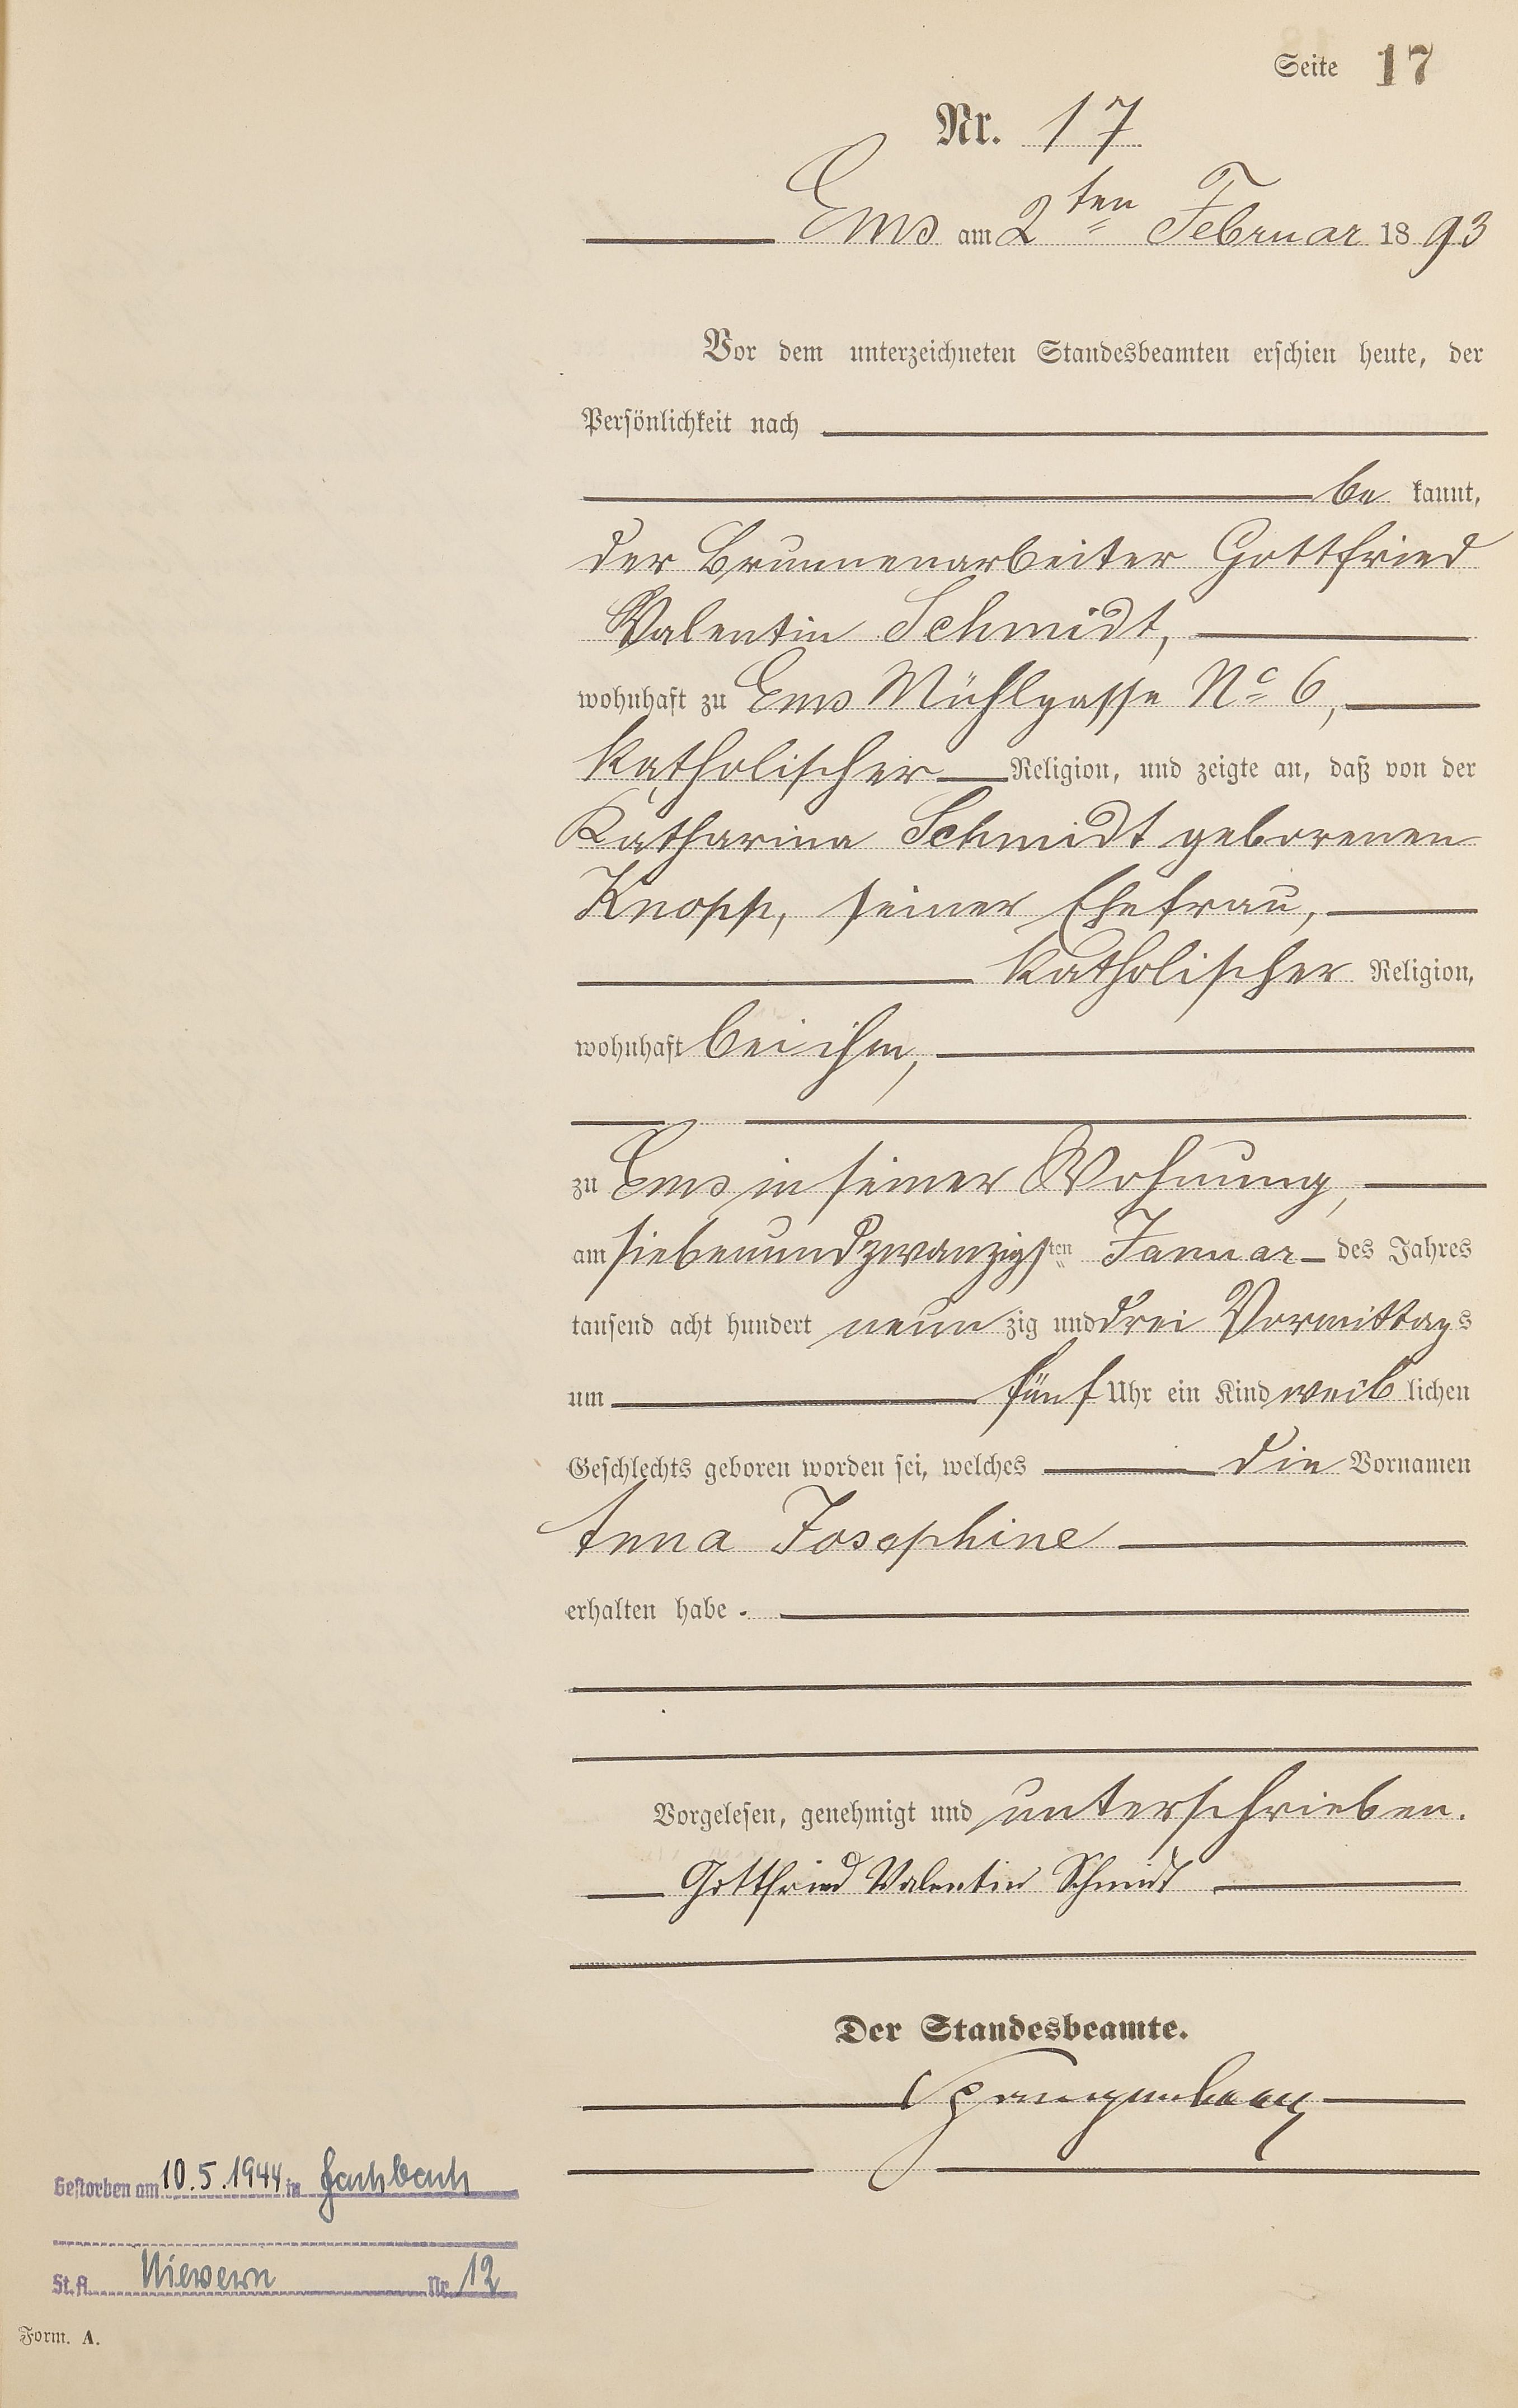 Seite 17
Nr. 17
Ems am 2ten Februar 1893
Vor dem unterzeichneten Standesbeamten erschien heute, der
Persönlichkeit nach
be kannt,
der Brunnenarbeiter Gottfried
Valentin Schmidt,
wohnhaft zu Ems Mühlgasse No 6,
katholischer Religion, und zeigte an, daß von der
Katharina Schmidt geborenen
Knopp, seiner Ehefrau,
katholischer Religion,
wohnhaft bei ihm,
zu Ems in seiner Wohnung,
am siebenundzwanzigsten Januar des Jahres
tausend acht hundert neun zig und drei Vormittags
um fünf Uhr ein Kind weib lichen
Geschlechts geboren worden sei, welches die Vornamen
Anna Josephine
erhalten habe.
Vorgelesen, genehmigt und unterschrieben.
Gottfried Valentin Schmidt
Der Standesbeamte.
Gestorben am 10.5.1944 in Fachbach
St.A. Nievern Nr. 12
Form. A.